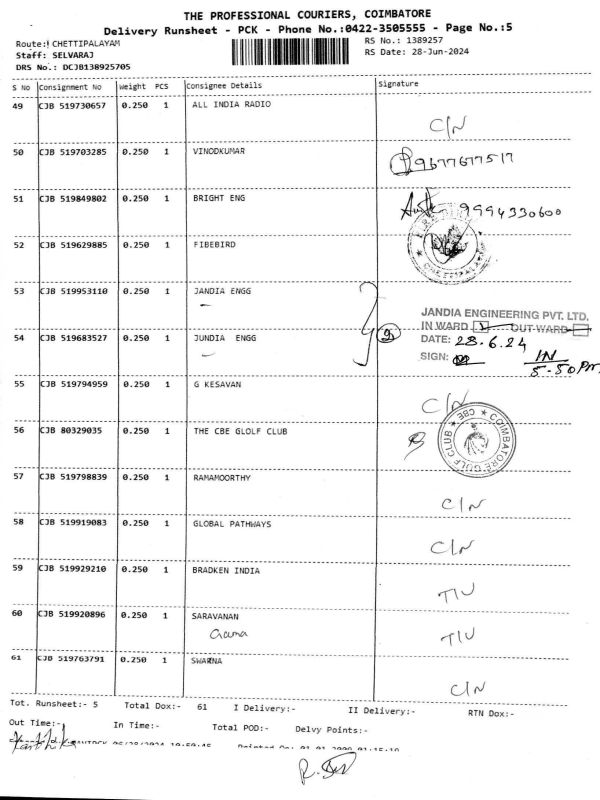 THE PROFESSIONAL COURIERS, COIMBATORE
Delivery Runsheet - PCK - Phone No.:0422-3505555 - Page No.:5
Route:! CHETTIPALAYAM RS No.: 1389257
Staff: SELVARAJ RS Date: 28-Jun-2024
DRS No.: DCJB138925705
S No Consignment No Weight PCS Consignee Details Signature
49 CJB 519730657 0.250 1 ALL INDIA RADIO C/N
50 CJB 519703285 0.250 1 VINODKUMAR 9677677517
51 CJB 519849802 0.250 1 BRIGHT ENG 9994330600
52 CJB 519629885 0.250 1 FIBEBIRD
53 CJB 519953110 0.250 1 JANDIA ENGG
JANDIA ENGINEERING PVT. LTD.
IN WARD OUT WARD
54 CJB 519683527 0.250 1 JUNDIA ENGG DATE: 28.6.24
SIGN: IN
5-50 PM
55 CJB 519794959 0.250 1 G KESAVAN C/N
56 CJB 80329035 0.250 1 THE CBE GLOLF CLUB
COIMBATORE GOLF CLUB ★ CBE ★
57 CJB 519798839 0.250 1 RAMAMOORTHY C/N
58 CJB 519919083 0.250 1 GLOBAL PATHWAYS C/N
59 CJB 519929210 0.250 1 BRADKEN INDIA TIU
60 CJB 519920896 0.250 1 SARAVANAN TIU
61 CJB 519763791 0.250 1 SWARNA C/N
Tot. Runsheet:- 5 Total Dox:- 61 I Delivery:- II Delivery:- RTN Dox:-
Out Time:- In Time:- Total POD:- Delvy Points:-